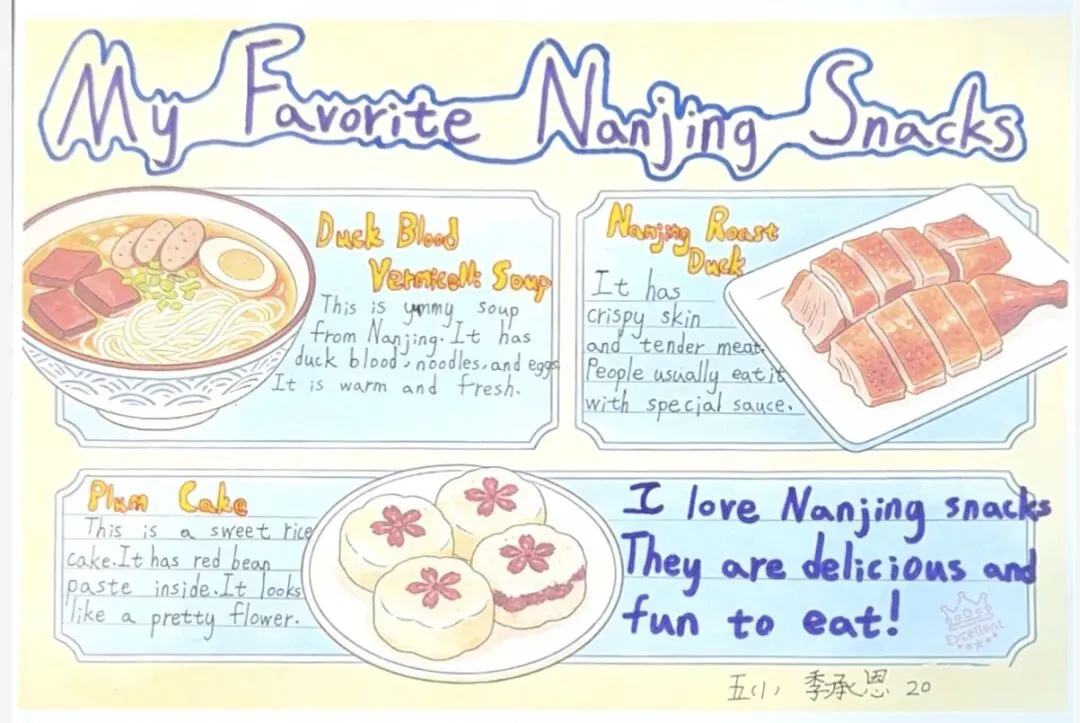 My Favorite Nanjing Snacks
Duck Blood
Vermicelli Soup
This is yummy soup
from Nanjing. It has
duck blood, noodles, and eggs.
It is warm and fresh.
Nanjing Roast
Duck
It has
crispy skin
and tender meat.
People usually eat it
with special sauce.
Plum Cake
This is a sweet rice
cake. It has red bean
paste inside. It looks
like a pretty flower.
I love Nanjing snacks
They are delicious and
fun to eat!
Excellent
五(1) 季承恩 20